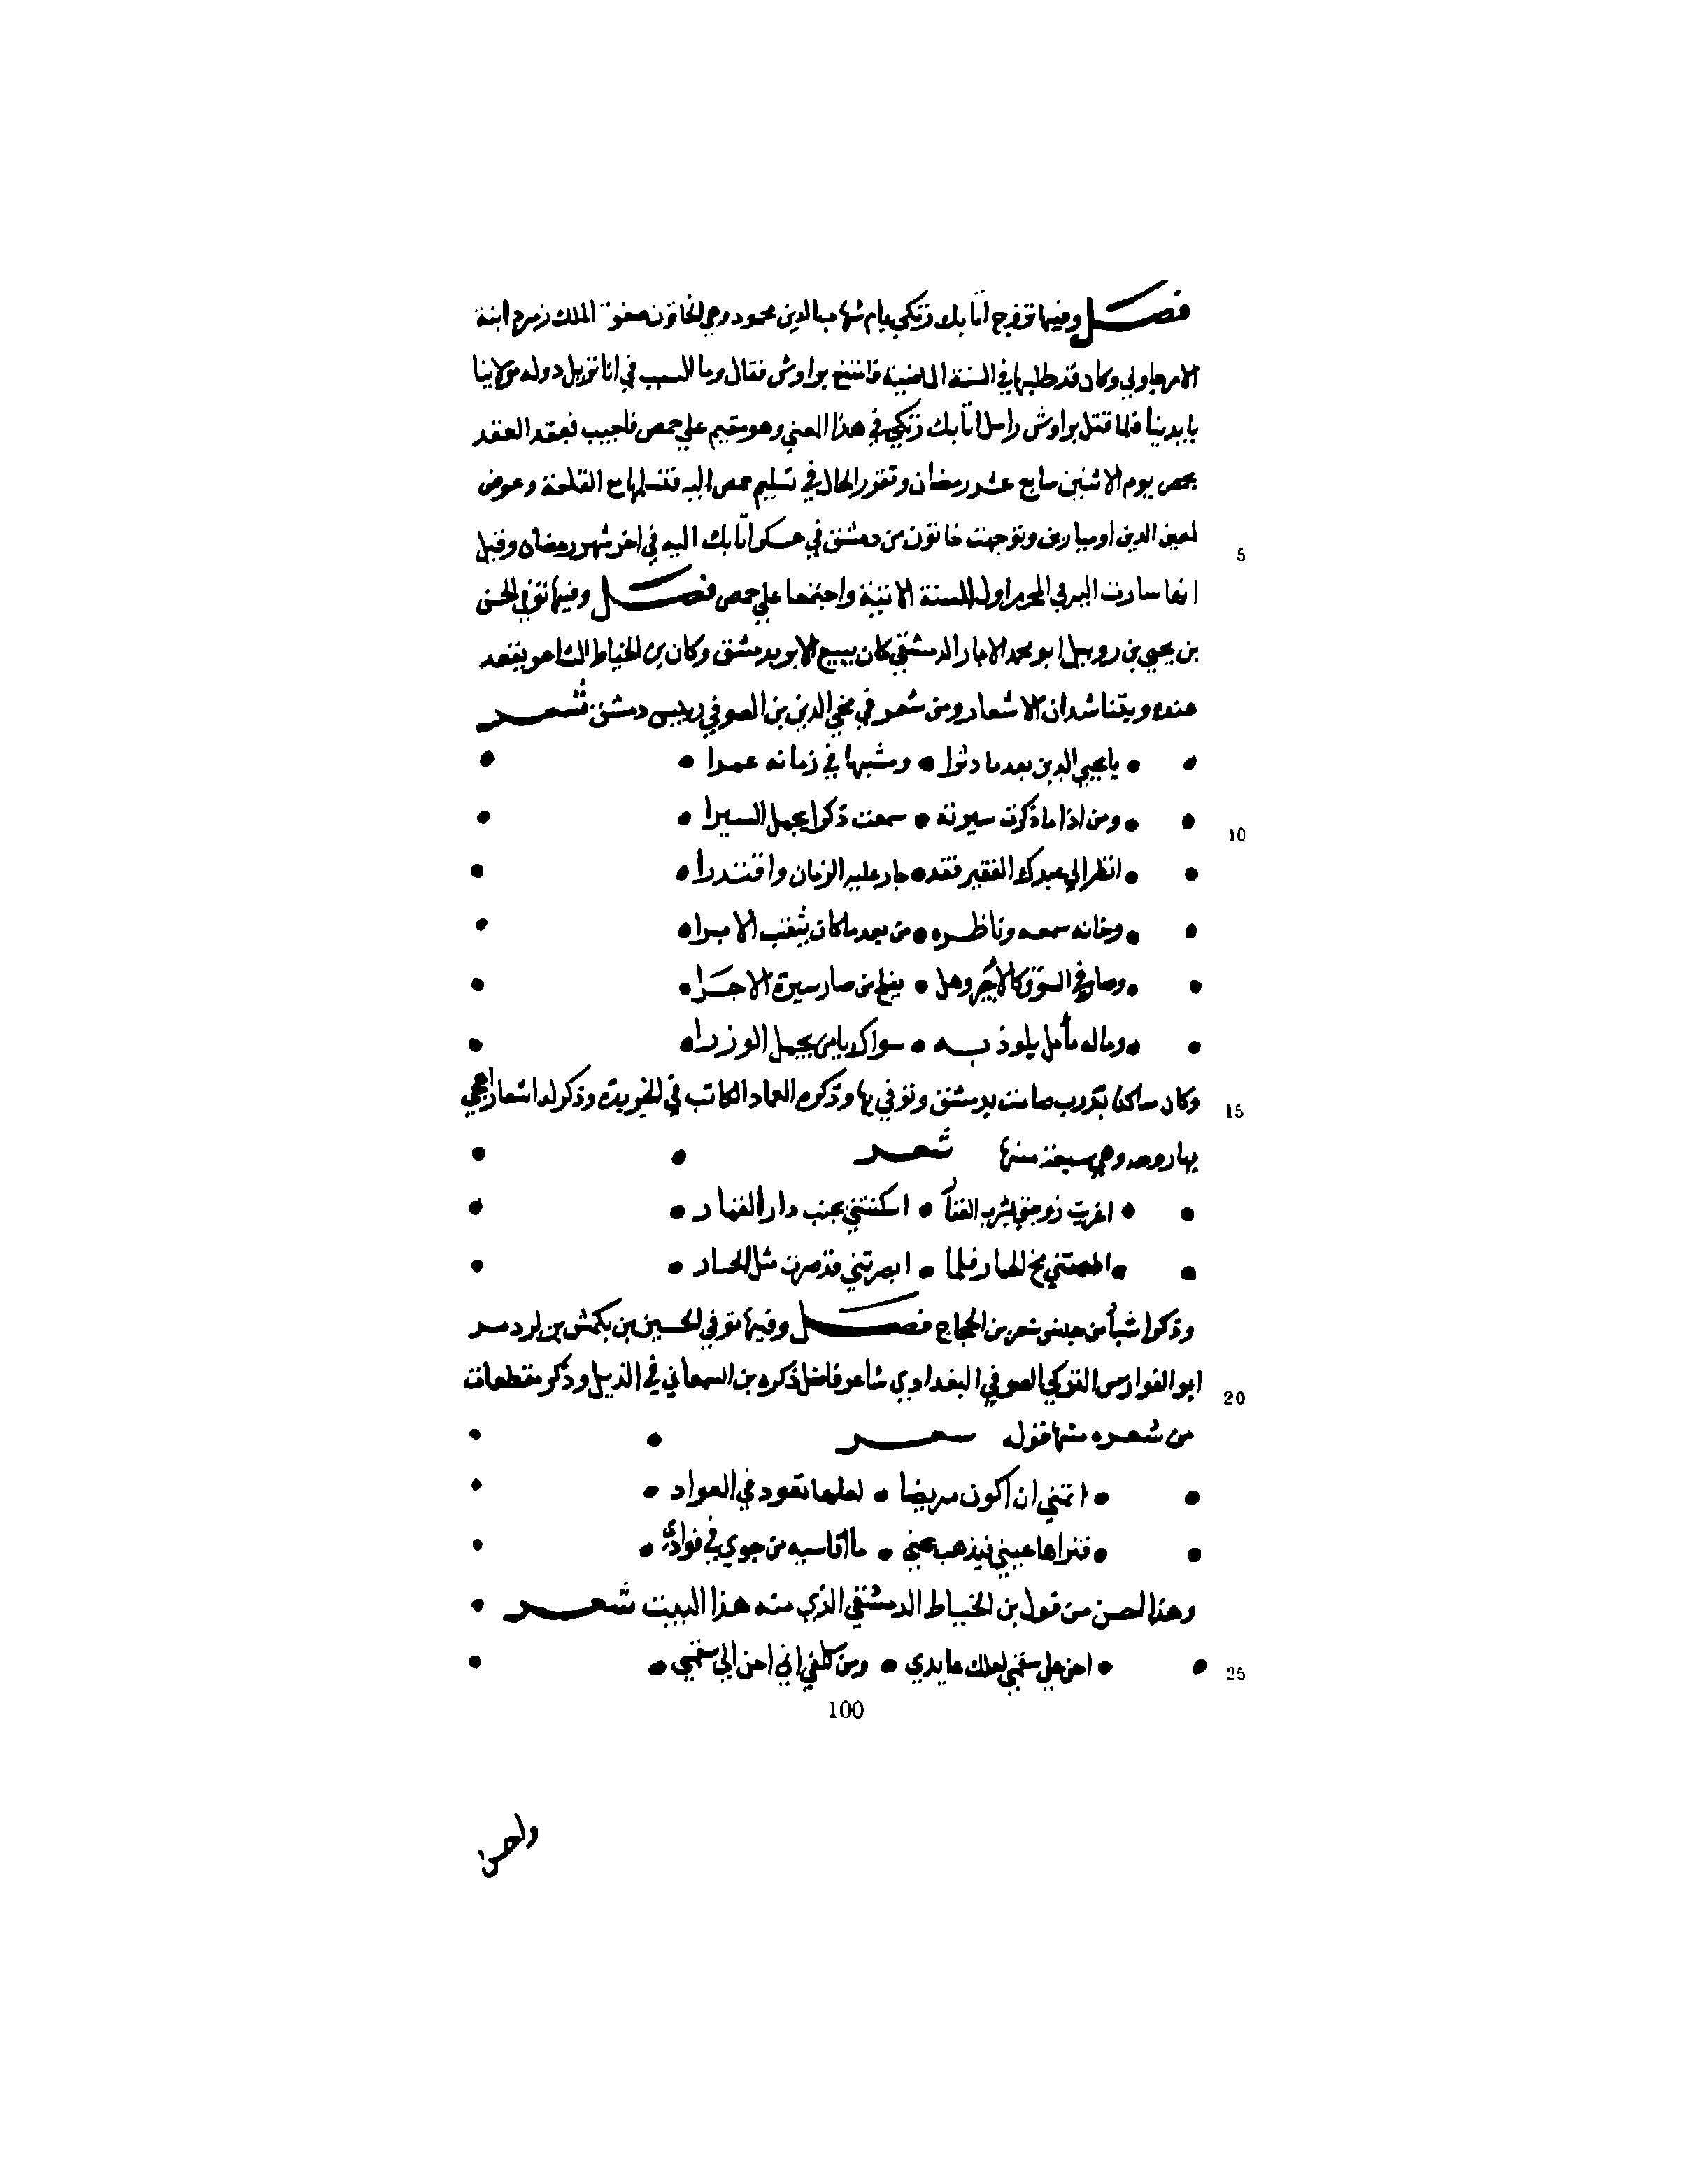 فصل وفيها تزوج اتابك زنكي بام شهاب الدين محمود وهي الخاتون صفوة الملك زمرد ابنة
الامير جاولي وكان قد طلبها في السنة الماضية فامتنع بزاوش فقال وما السبب في انا نزيل دوله مولاينا
بايدينا فلما قتل بزاوش راسل اتابك زنكي في هذا المعني وهو مقيم علي حمص فاجيب فعقد العقد
بحمص يوم الاثنين سابع عشر رمضان وتقرر الحال في تسليم حمص اليه فتسلمها مع القلعة وعوض
لمعين الدين او بعارين وتوجهت خاتون من دمشق في عسكر اتابك اليه في اخر شهر رمضان وقيل
انها سارت اليه في المحرم اول السنة الاتية واجتمعا علي حمص فصل وفيها توفي الحسن
بن يحيي بن روبيل ابو محمد الابار الدمشقي كان يبيع الابر بدمشق وكان بن الخياط الشاعر يقعد
عنده ويتناشدان الاشعار ومن شعره في محي الدين بن الصوفي رييس دمشق شعر
يا محيي الدين بعد ما دثرا • ومشبها في زمانه عمرا
ومن اذا ما ذكرت سيرته • سمعت ذكرا يجمل السيرا
انظر الي عبدك الفقير فقد • جار عليه الزمان واقتدرا
وخانه سمعه وناظره • من بعد ما كان يثقب الابرا
وصار في السوق كالاجير وهل • يفلح من صار سيرة الاجرا
وماله مأمل يلوذ به • سواك يا من يجمل الوزرا
وكان ساكنا بدرب صامت بدمشق وتوفي بها وذكره العماد الكاتب في الخريدة وذكر له اشعارا هجي
بها زوجه وهي سبعة منها شعر
اغريت زوجتي بشرب العقار • اسكنتني بجنب دار القمار
اطعمتني مخ الحمار فلما • ابصرتني قد صرت مثل الحمار
وذكر اشيأ من جنس شعر بن الحجاج فصل وفيها توفي الحسين بن بكمش بن
ابو الفوارس التركي الصوفي البغدادي شاعر فاضل ذكره بن السمعاني في الذيل وذكر مقطعات
من شعره منها قوله شعر
اتمني ان اكون مريضا • لعلها تعود في العواد
فتراها عيني فيذهب عني • ما اقاسيه من جوي في فوادي
وهذا احسن من قول بن الخياط الدمشقي الذي منه هذا البيت شعر
احن علي سقمي لعلك عايدي • ومن كلفي اني احن الي سقمي
5
10
15
20
25
100
واحسن